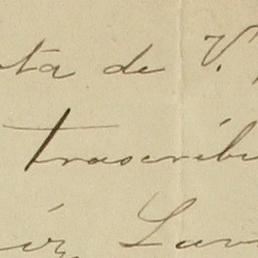 ota de V.
trascribi
iz Lar